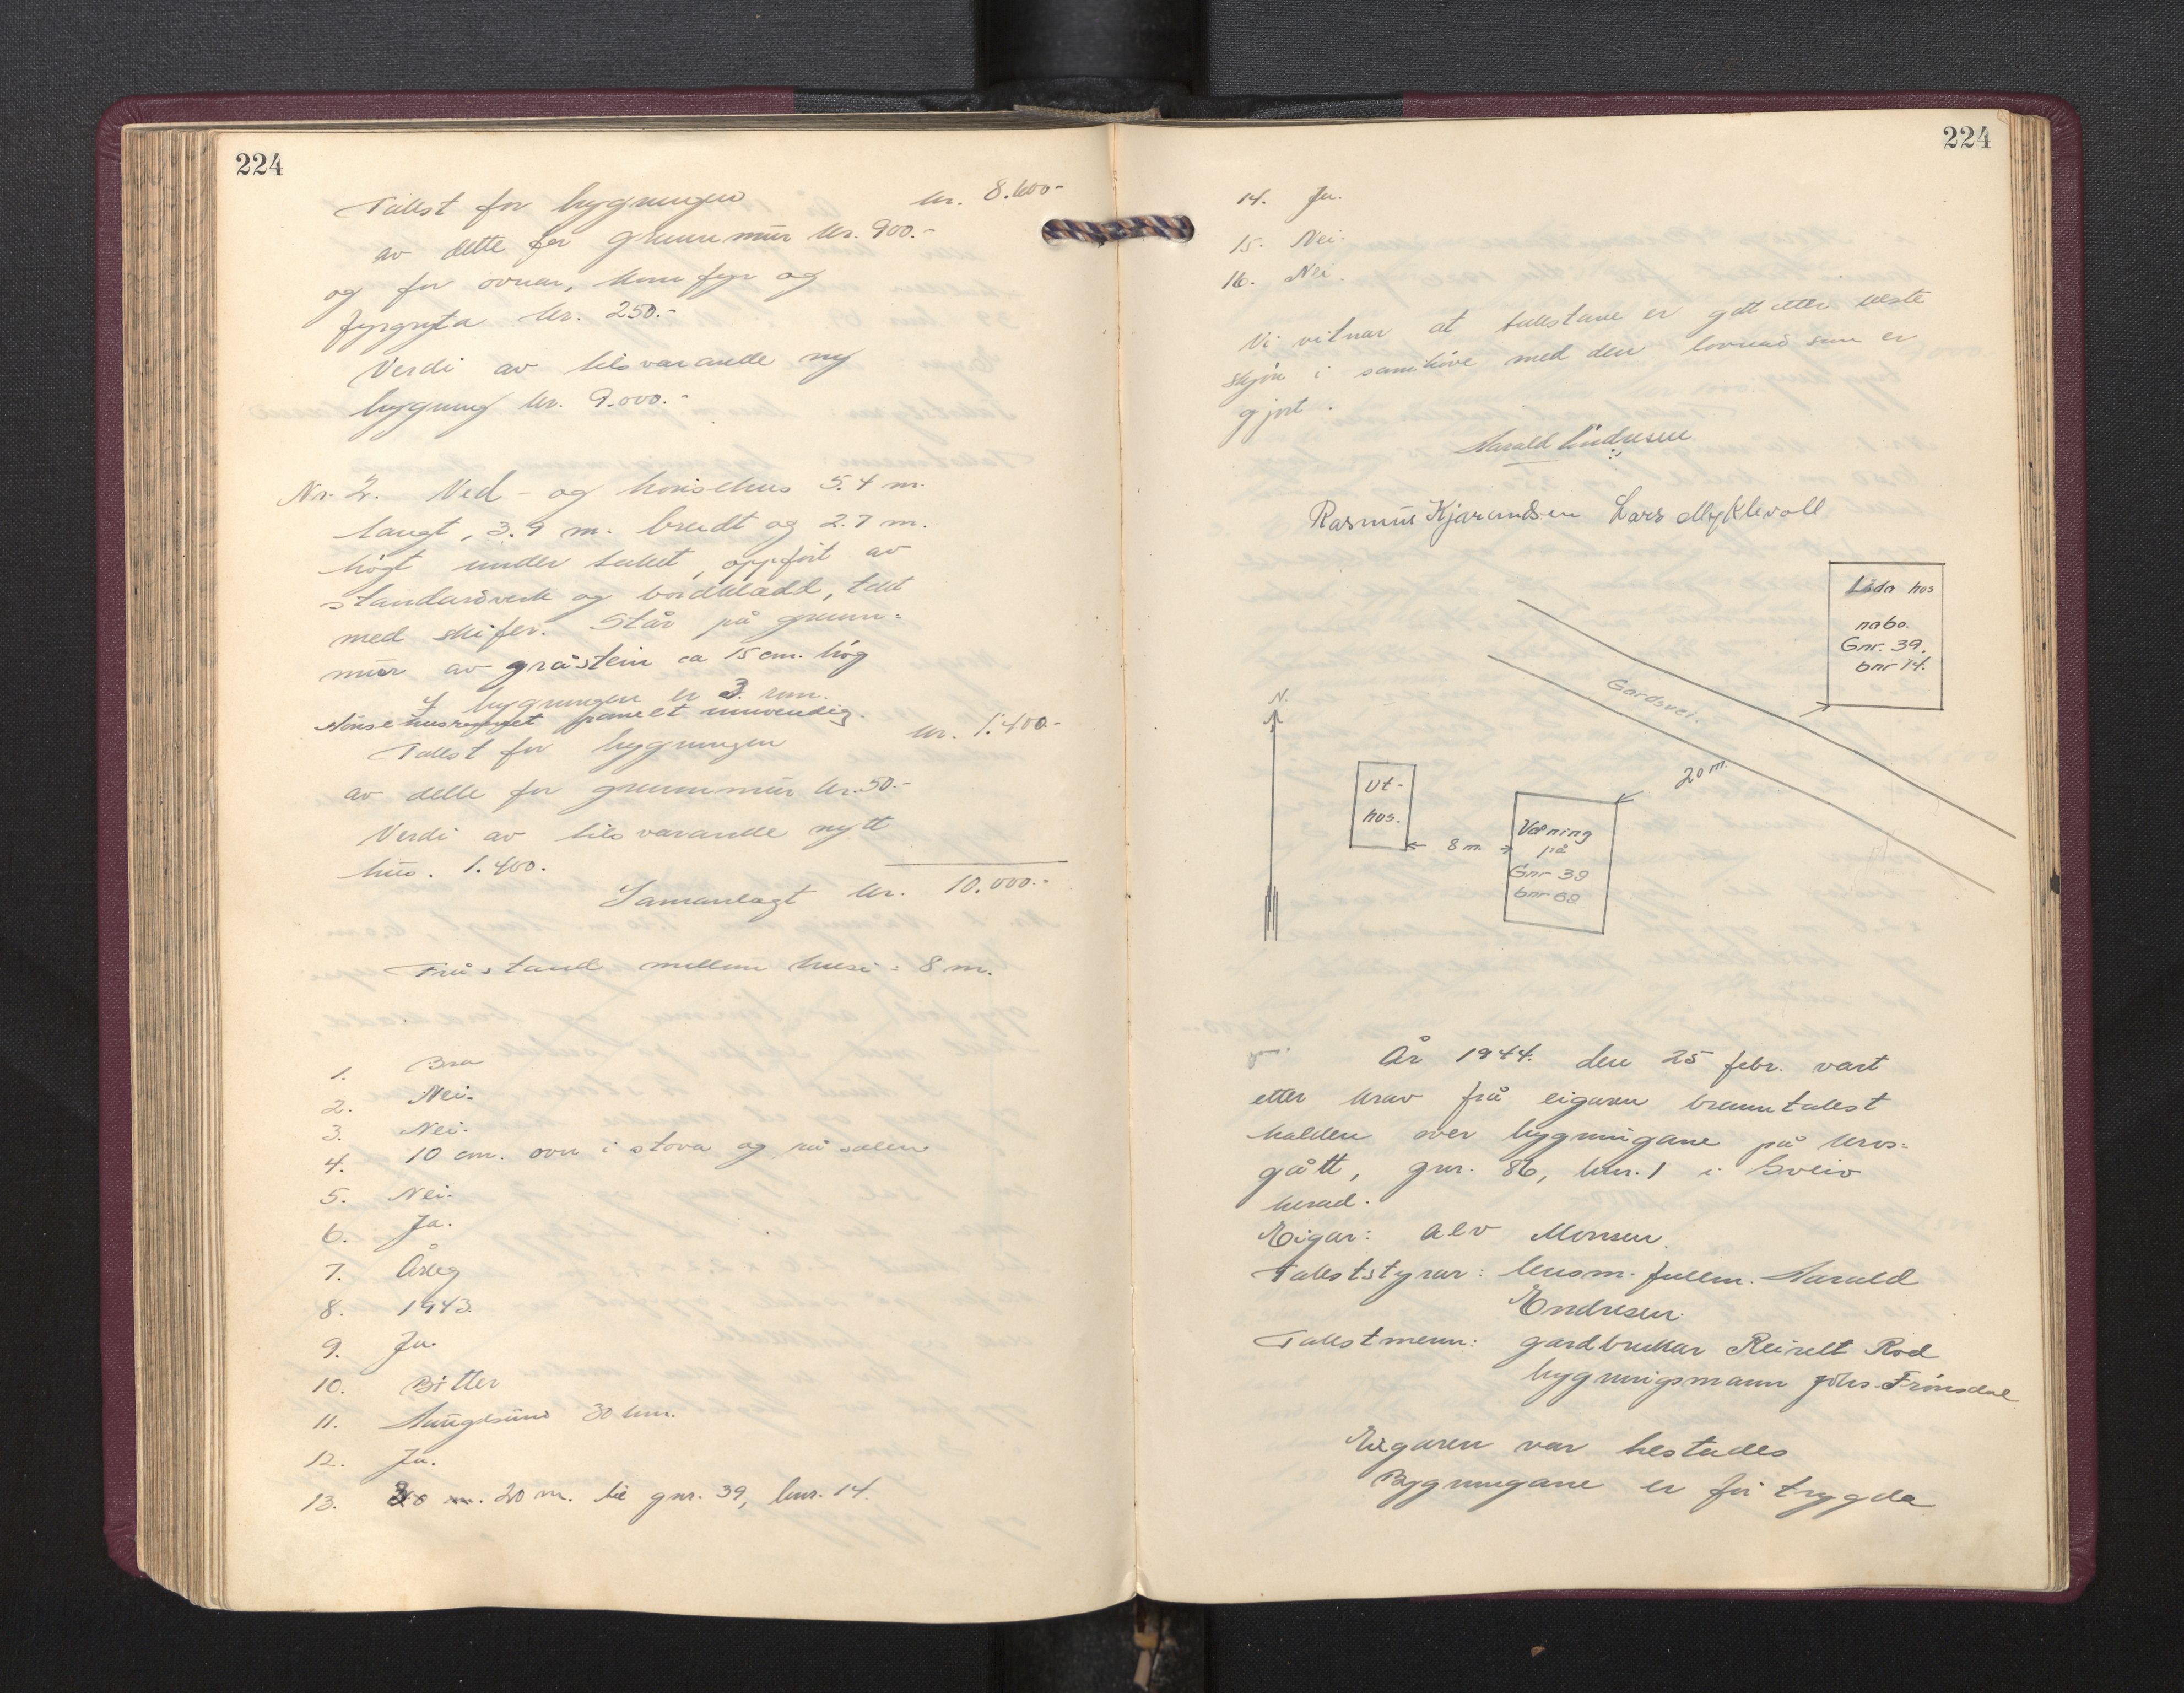 224
Takst for bygningen kr. 8.600.-
av dette for grunnmur kr. 900.-
og for ovnar, komfyr og
fyrgryta kr. 250.-
Verdi av tilsvarande ny
bygning kr. 9.000.-
Nr. 2. Ved- og hønsehus 5.4 m.
langt, 3.9 m. breidt og 2.7 m.
høgt under taket, oppført av
standardverk og bordkledd, tekt
med skifer. Står på grunn=
mur av gråstein ca 15 cm. høg
I bygningen er 3 rum.
Hønsehusrommet panelt innvendig.
Takst for bygningen kr. 1.400.-
av dette for grunnmur kr. 50.-
Verdi av tilsvarande nytt
hus. 1.400.
Samanlagt kr. 10.000.-
Fråstand mellom husi: 8 m.
1. Bra
2. Nei.
3. Nei.
4. 10 cm. ovn i stova og på salen
5. Nei.
6. Ja.
7. Årleg
8. 1943.
9. Ja.
10. Bøtter
11. Haugesund 30 km.
12. Ja.
13. 20 m. til gnr. 39, bnr. 14.
224
14. Ja.
15. Nei.
16. Nei.
Vi vitnar at takstane er gitt etter beste
skjøn i samhøve med den lovnad som er
gjort.
Harald Endresen
Rasmus Kjarandsen Lars Myklevoll
Løda hos
nabo.
Gnr. 39.
bnr 14.
Gardsvei.
N.
20 m.
Ut-
hus.
8 m.
Våning
på
Gnr 39
bnr 69
År 1944. den 25 febr. vart
etter krav frå eigaren branntakst
halden over bygningane på
gått, gnr. 86, bnr. 1 i Sveio
herad.
Eigar: Alv Monsen.
Takststyrar: lensm. fullm. Harald
Endresen.
Takstmenn: gardbrukar Reinelt Rod
bygningsmann Johs. Frønsdal
Eigaren var tilstades
Bygningane er før trygda